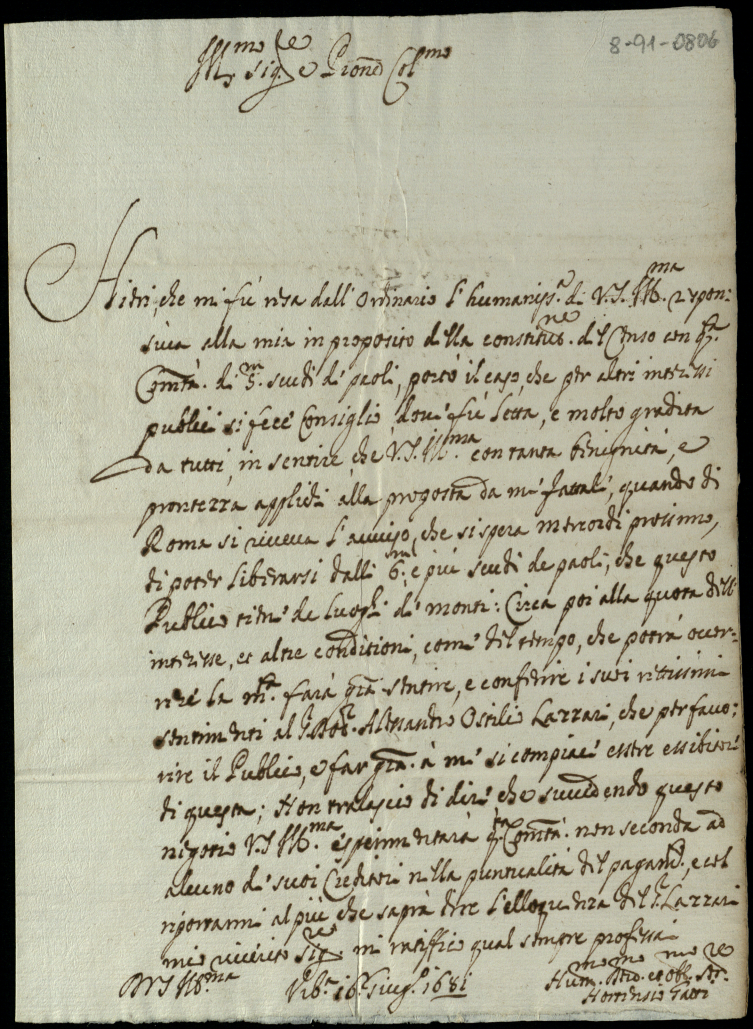 8-91-0806
Ill.mo Sig.re e Pron Col.mo
Hieri, che mi fù resa dall'Ordinario l'humaniss.a di V.S. Ill.ma respon:
siva alla mia in proposito della constitut.ne del Censo con q.ta
Com.tà di 5.m scudi di paoli, portò il caso, che per altri interessi
publici si fece Consiglio dove fù letta, e molto gradita
da tutti, in sentire che V.S. Ill.ma con tanta benignità, e
prontezza applichi alla proposta da me fattali, quando di
Roma si riceva l'avviso, che si spera mercordì prossimo,
di poter liberarsi dalli 6.m e più scudi de paoli, che questo
Publico tiene de luoghi di monti: Circa poi alla quota dell'
interesse, et altre conditioni, come del tempo, che potrà occor:
rere la m.a farà gra sentire, e conferire i suoi rettissimi
sentimenti al Alessandro Ostilio Lazzari, che per favo:
rire il Publico, e far gra à me si compiace essere essibitore
di questa; Non tralascio di dire che succedendo questo
negotio V.S. Ill.ma esperimentarà q.ta Com.tà non seconda ad
alcuno de suoi Creditori nella puntualità del pagam.to, e col
riportarmi al più che saprà dire l'elloquenza del S.r Lazzari
mio riverito Sig.re mi ratiffico qual sempre professai
Di V.S. Ill.ma Vit.o 16 Giug.o 1681
Hum.mo Dev.mo et Obl.mo Ser.re
Hortensio Gatti